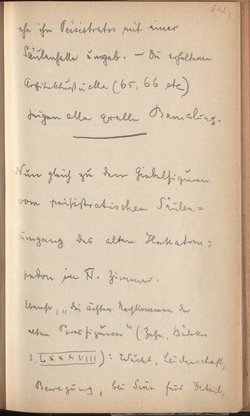 ehe ihn Peisistratos mit einer
Säulenhalle umgab. – Die erhaltenen
Architekturstücke (65, 66 etc)
zeigen alle grelle Bemalung.
Nun gleich zu den Giebelfiguren
vom peisistratischen Säulen=
umgang des alten Hekatom=
pedon im V. Zimmer.
Ebenso, "die ächten Nachkommen der
alten Porosfiguren" (Zehn, Bädeker
S. LXXXVIII): Wucht, Leidenschaft,
Bewegung, bei Sinn für Detail,